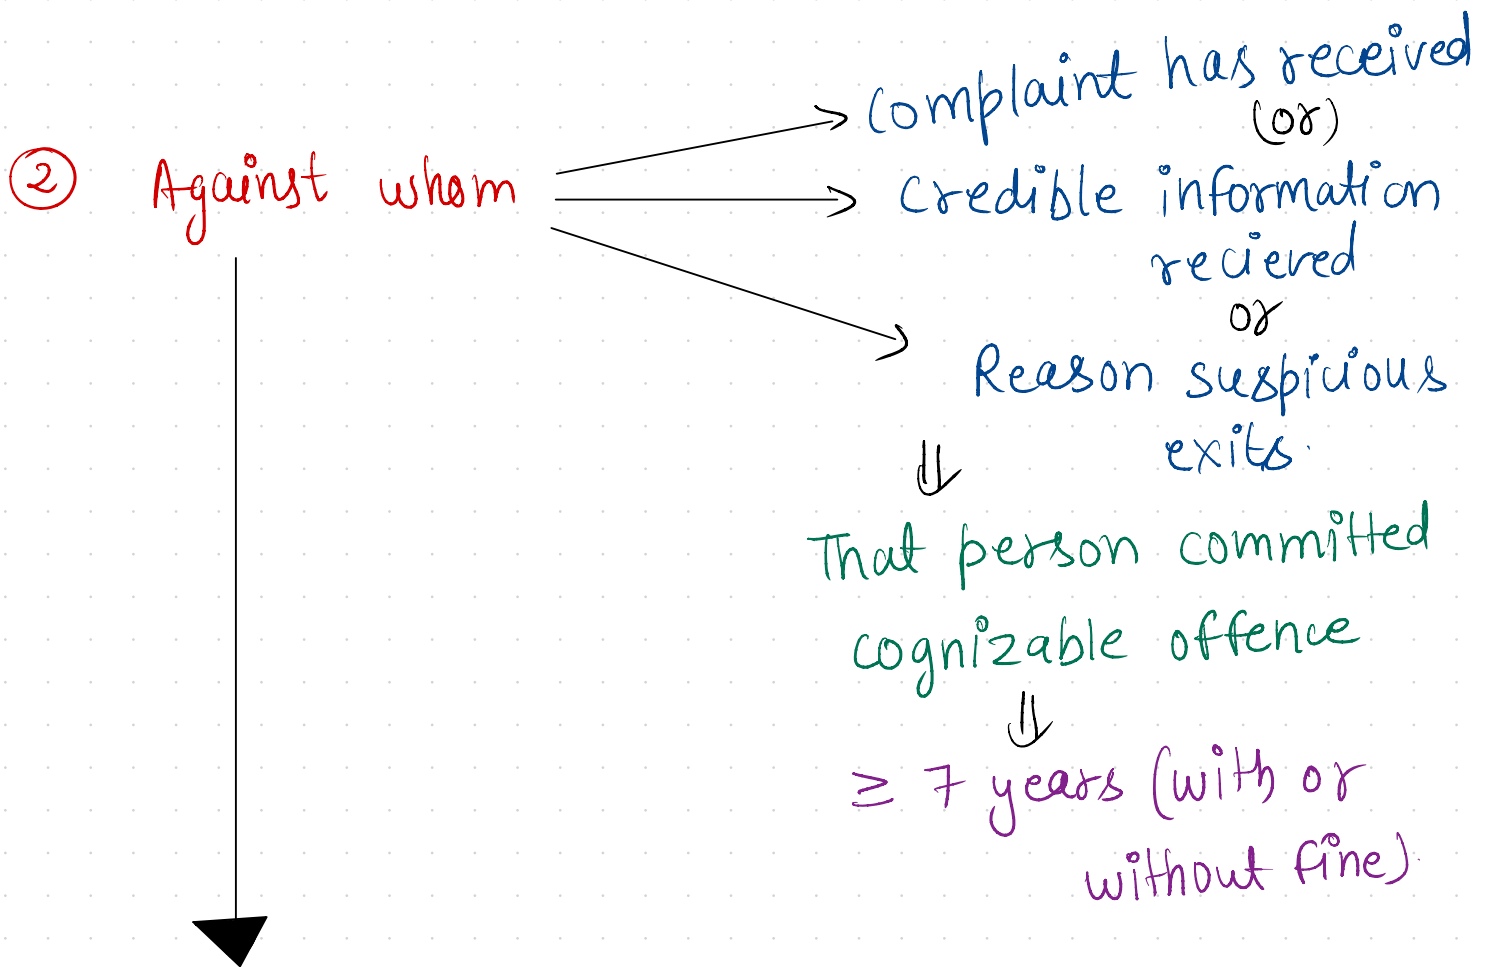 Complaint has received
(or)
② Against whom
Credible information
recieved
or
Reason suspicious
exits.
That person committed
cognizable offence
≥ 7 years (with or
without fine)